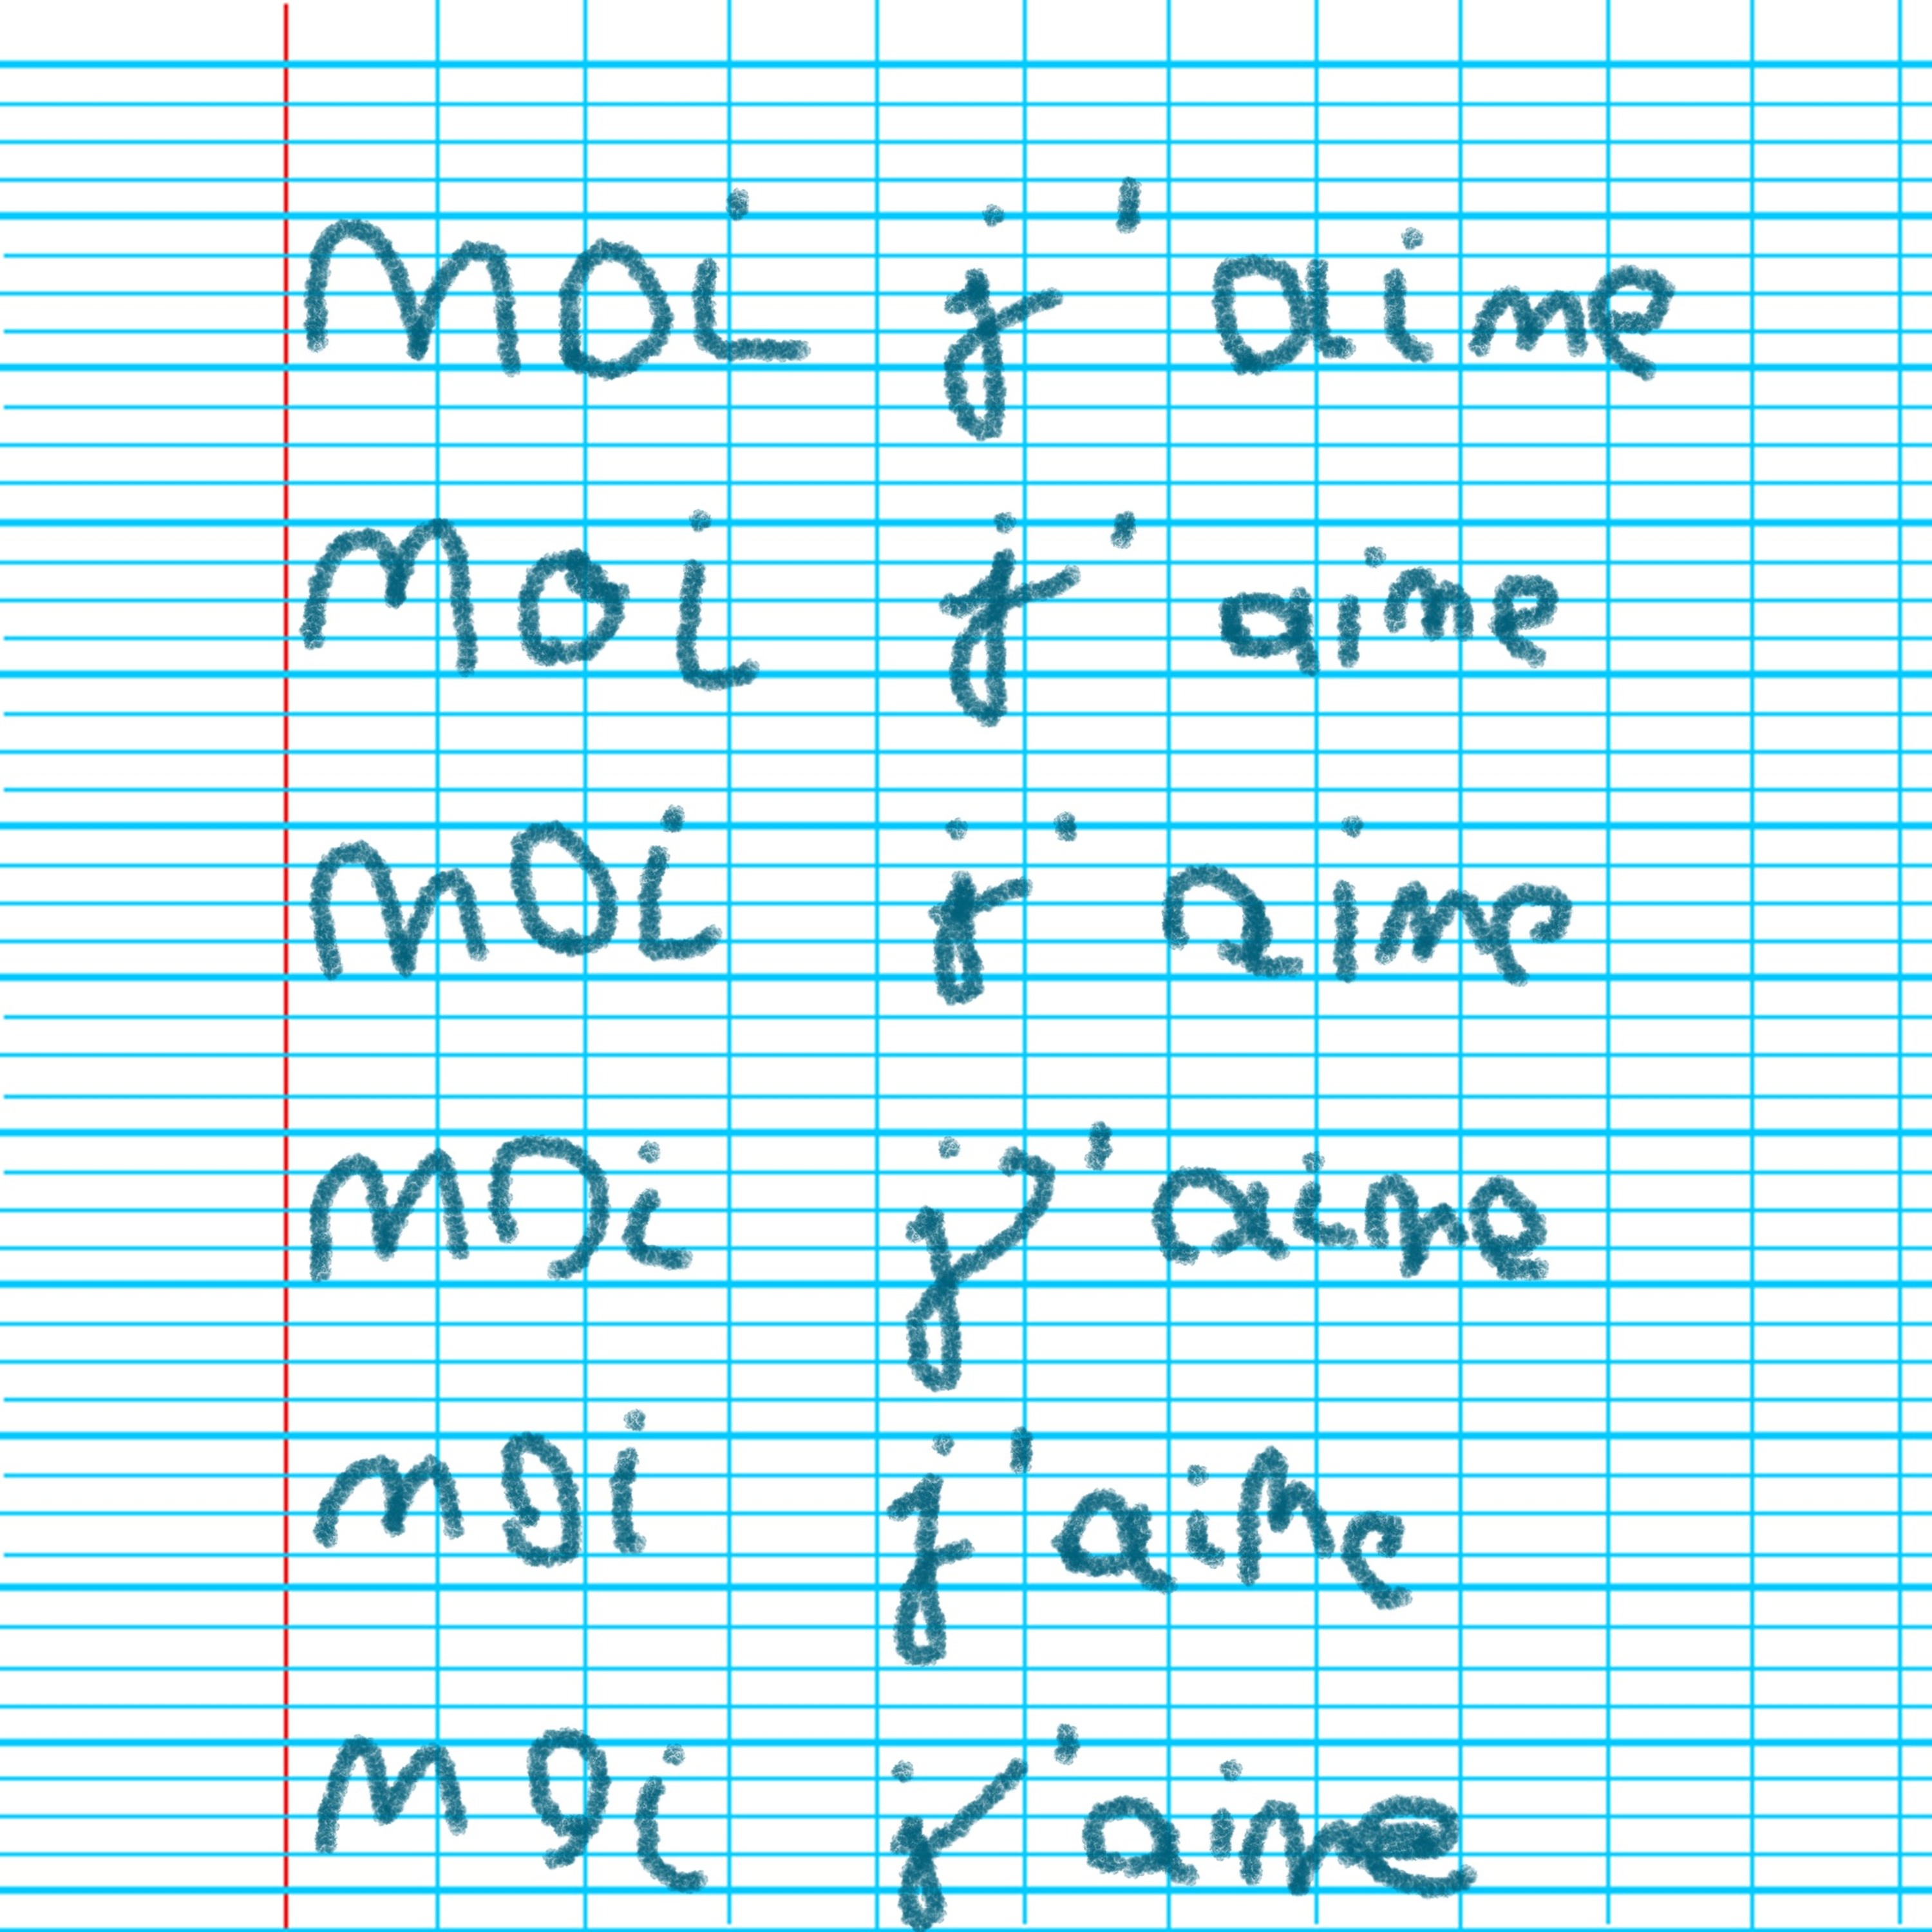 Moi j'aime
Moi j'aime
Moi j'aime
Moi j'aime
Moi j'aime
Moi j'aime